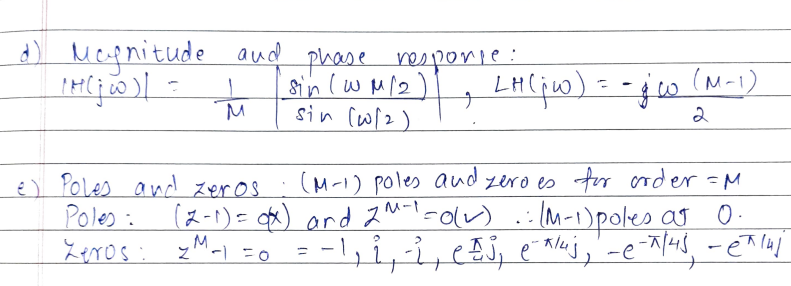 d) Magnitude and phase response:
|H(jω)| = 1/M |sin(ω M/2) / sin(ω/2)|, ∠H(jω) = -jω(M-1)/2
e) Poles and zeros : (M-1) poles and zeroes for order = M
Poles : (z-1) = 0(x) and z^M-1 = 0(✓) ∴ (M-1) poles as 0.
Zeros : z^M-1 = 0 = -1, i, -i, e^π/4 j, e^-π/4j, -e^-π/4j, -e^π/4j